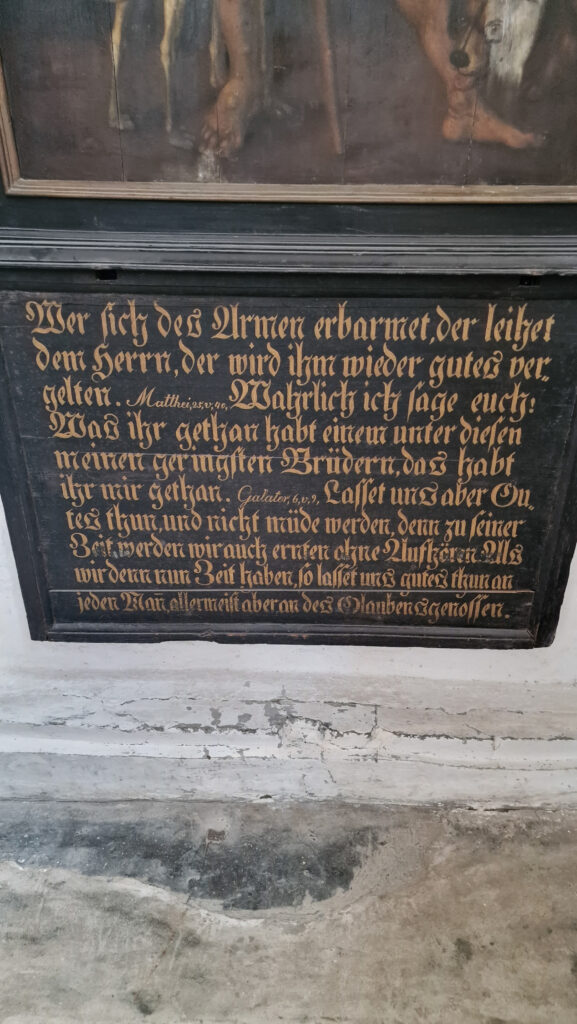 Wer sich des Armen erbarmet, der leihet
dem Herrn, der wird ihm wieder gutes ver-
gelten. Matthei, 25, v, 40, Wahrlich ich sage euch:
Was ihr gethan habt einem unter diesen
meinen geringsten Brüdern, das habt
ihr mir gethan. Galater, 6, v, 9, Lasset uns aber Gu-
tes thun, und nicht müde werden, denn zu seiner
Zeit werden wir auch ernten ohne Aufhören Als
wir denn nun Zeit haben, so lasset uns gutes thun an
jeden Man̅ allermeist aber an des Glaubensgenossen.